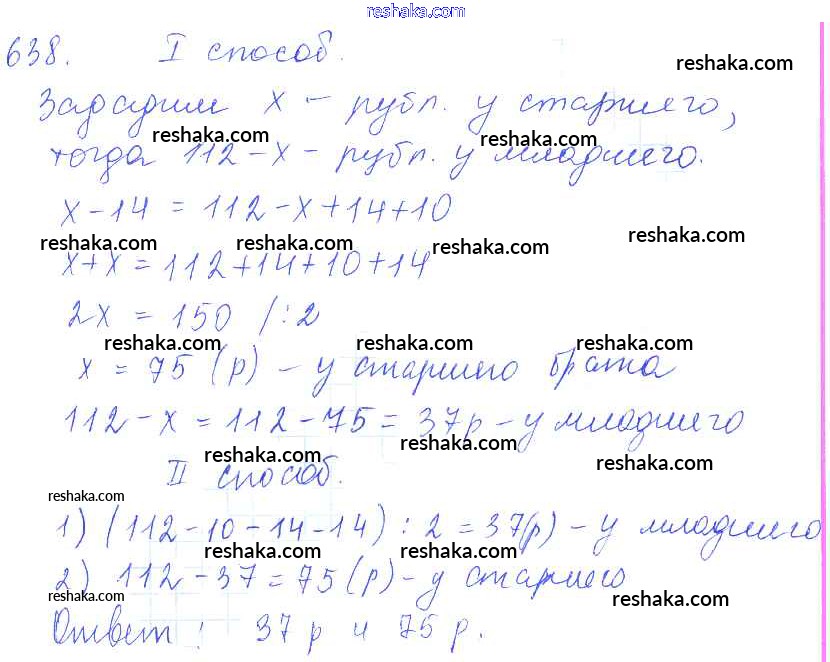 reshaka.com
638. I способ.
reshaka.com
Зададим x - рубл. у старшего,
reshaka.com reshaka.com
тогда 112-x - рубл. у младшего.
x-14 = 112-x+14+10
reshaka.com reshaka.com reshaka.com reshaka.com
x+x = 112+14+10+14
2x = 150 /:2
reshaka.com reshaka.com reshaka.com
x = 75 (р) - у старшего брата
112-x = 112-75 = 37р - у младшего
reshaka.com reshaka.com reshaka.com
II способ.
reshaka.com
1) (112-10-14-14) : 2 = 37(р) - у младшего
reshaka.com reshaka.com
2) 112-37 = 75 (р) - у старшего
reshaka.com reshaka.com
Ответ: 37 р и 75 р.